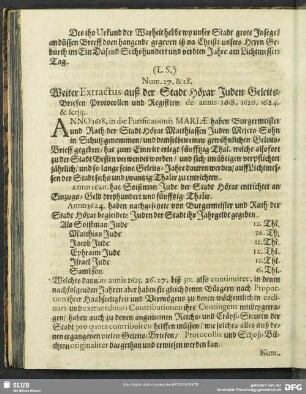 Des tho Urkund der Warheit hebbe wy unser Stadt grote Insegel
an düssen Breeff doen hangende gegeven is na Christi unsers Herrn Ge-
bürth im Ein Dusend Sechshundert und verdten Jahre am Lichtmesser-
Tag.
(L.S.)
Num. 27. & 28.
Weiter Extractus auß der Stadt Höxar Juden Geleits-
Brieffen Protocollen und Registern de annis 1618. 1620. 1624.
& seqq.
ANNO 1618. in die Purificationis MARIÆ haben Burgermeister
und Rath der Stadt Höxar Matthiassen Juden Mejers Sohn
in Schutz genommen / und demselben einen gewöhnlichen Geleits-
Brieff gegeben / hat zum Eintritt erlegt fünfftzig Thal. welche alsofort
zu der Stadt Besten verwendet worden / und sich im übrigen verpflichtet
jährlich / und so lange seine Geleits-Jahre dauren werden / auff Lichtmes-
sen der Stadt sechs und zwantzig Thaler zu entrichten.
Anno 1620. hat Soistman Jude der Stadt Höxar entrichtet an
Einzugs-Geld drephundert und fünfftzig Thaler.
Anno 1624. haben nachgesetzte von Burgermeister und Rath der
Stadt Höxar begleidete Juden der Stadt ihr Jahrgeldt gegeben.
Als Soistman Jude 12. Thl.
Matthias Jude 26. Th.
Jacob Jude 12. Thl.
Ephraim Jude 12. Thl.
Israel Jude 12. Thl.
Samson 6. Thl.
Welches dann in anno 1625. 26. 27. biß 30. also continuiret, in denen
nachfolgenden Jahren aber haben sie gleich denen Bürgern nach Propor-
tion ihrer Haabseeligkeit und Vermögens zu denen wöchentlichen ordi-
nari- und extraordinari Contributionen ihre Contingent mitbeygetra-
gen / haben auch zu denen angenommen Reichs- und Crayß-Steuren der
Stadt pro quota contribuiren helffen müssen / wie solches alles auß de-
nen ergangenen vielen Geleits-Brieffen / Protocollis und Schoß-Bü-
chern originaliter dargethan und erwiesen werden kan.
Num.
SLUB
DFG